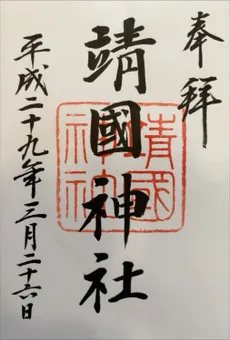 奉拝
靖國神社
平成二十九年三月二十六日
靖國
神社